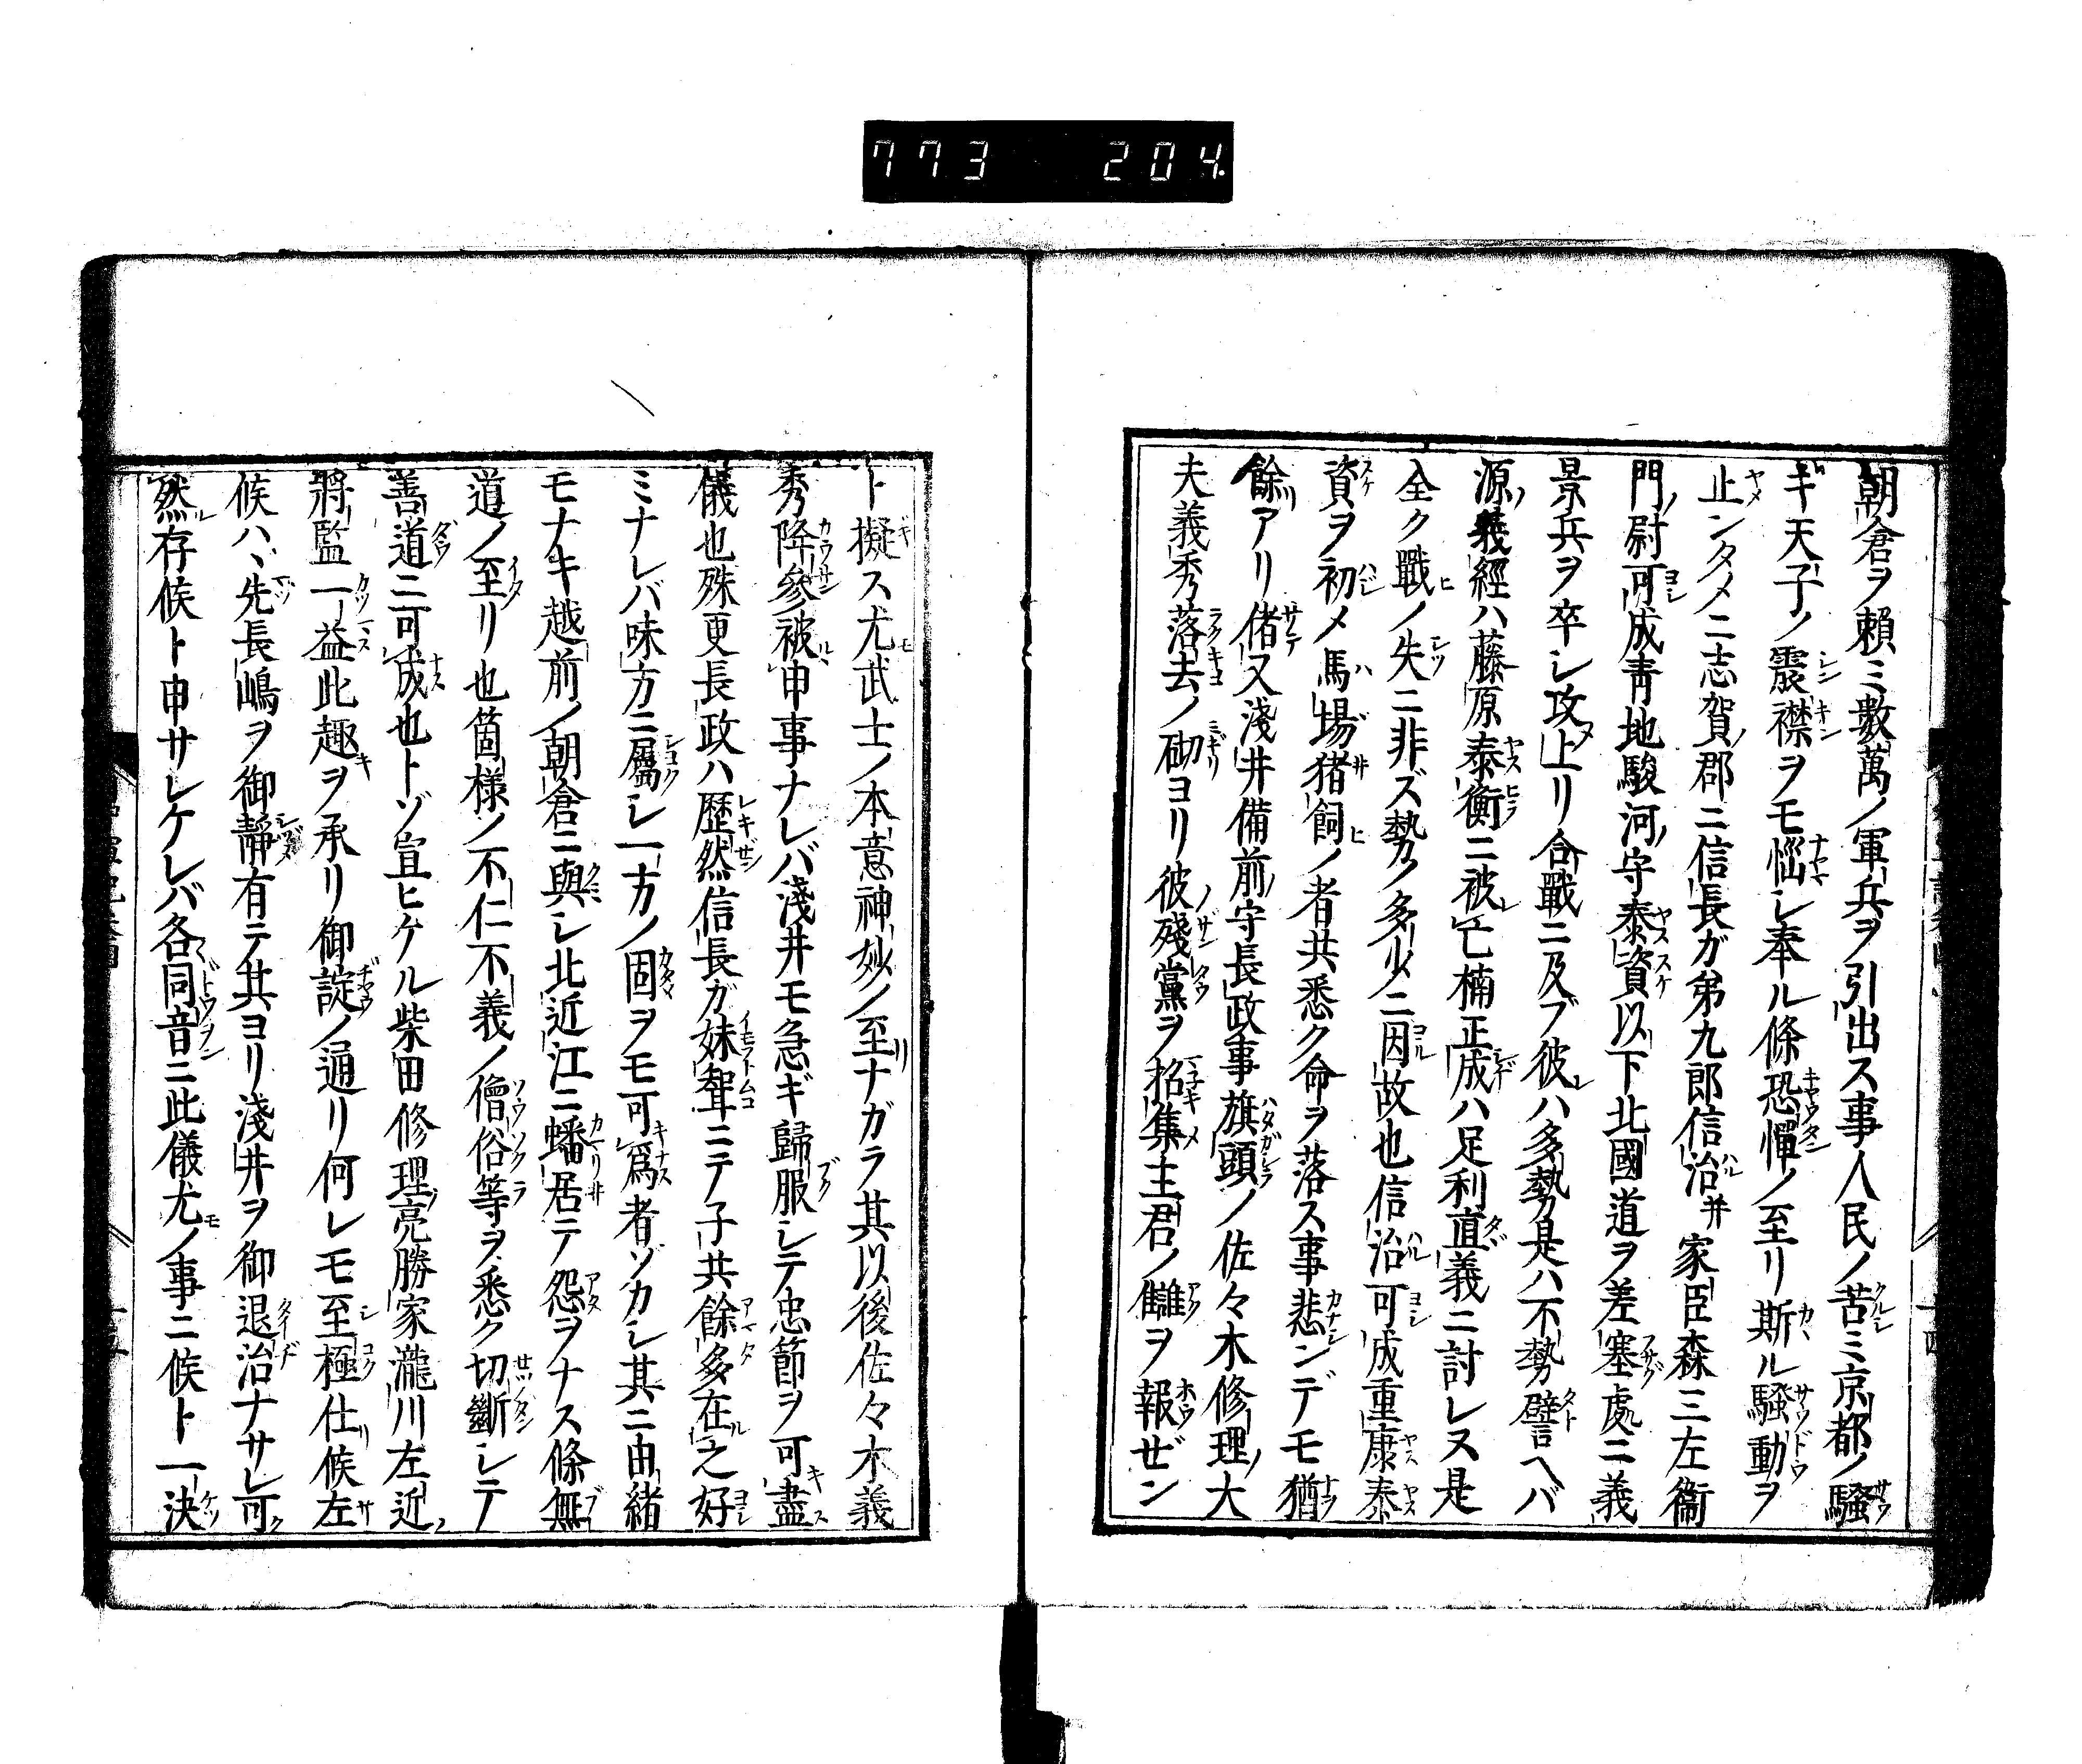 773 204
朝倉ヲ頼ミ數萬ノ軍兵ヲ引出ス事人民ノ苦ミ京都ノ騷
ギ天子ノ震襟ヲモ惱シ奉ル條恐惲ノ至リ斯ル騷動ヲ
止ンタメニ志賀郡ニ信長ガ弟九郎信治并家臣森三左衞
門尉可成靑地駿河守泰資以下北國道ヲ差塞處ニ義
景兵ヲ卒シ攻上リ合戰ニ及ブ彼ハ多勢是ハ不勢譬ヘバ
源義經ハ藤原泰衡ニ被亡楠正成ハ足利直義ニ討レス是
全ク戰ノ失ニ非ズ勢ノ多少ニ因故也信治可成重康泰
資ヲ初メ馬場猪飼ノ者共悉ク命ヲ落ス事悲ンデモ猶
餘アリ偖又淺井備前守長政事旗頭ノ佐々木修理大
夫義秀落去ノ砌ヨリ彼殘黨ヲ招集主君ノ讎ヲ報ゼン
ト擬ス尤武士ノ本意神妙ノ至ナガラ其以後佐々木義
秀降參被申事ナレバ淺井モ急ギ歸服シテ忠節ヲ可盡
儀也殊更長政ハ歴然信長ガ妹聟ニテ子共餘多在之好
ミナレバ味方ニ屬シ一方ノ固ヲモ可爲者ゾカシ其ニ由緒
モナキ越前ノ朝倉ニ與シ北近江ニ蟠居テ怨ヲナス條無
道ノ至リ也箇樣ノ不仁不義ノ僧俗等ヲ悉ク切斷シテ
善道ニ可成也トゾ宣ヒケル柴田修理亮勝家瀧川左近
將監一益此趣ヲ承リ御諚ノ通リ何レモ至極仕候左
候ハヽ先長嶋ヲ御靜有テ其ヨリ淺井ヲ御退治ナサレ可
然存候ト申サレケレバ各同音ニ此儀尤ノ事ニ候ト一決